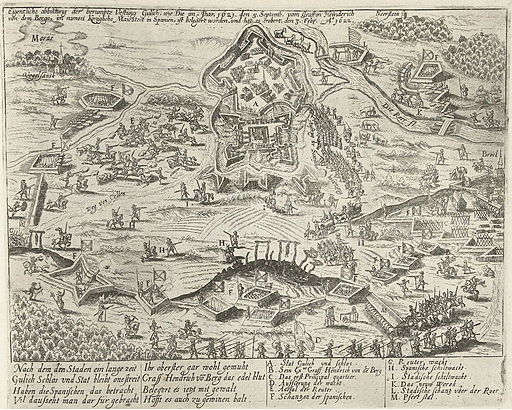 Eigentliche abbildung der berumpte Vestung Gulich, wie Die im Jahr 1621. den 5. Septemb. vom Graffen Heinderich
von dem Berge, im namen Königliche Maiesteit in Spanien, ist belegert worden, und hatt es erobert, den 3. Febr. Aº 1622.
Meerstein
Moras
Die Rör fl.
A
Nach dem den Staden ein lange zeit
Gulich Schlos und Stat bleibt onestreit
Haben die Spanischen das betracht
Vil dausent man dar für gebracht
Ihr oberster gar wohl gemuht
Graff Hendrich vo Berg das edel blut
Belegert es ietzt mit gewalt
Hofft es auch zu gewinnen balt
A. Stat Gulich und schlos
B. Sein Ex. Graff Hendrich von de Berg
C. Das erst Principal quartier.
D. Auffürung der wacht
F. Schantzen der spanischen.
G. Reuter, wacht
H. Spanische schiltwacht
I. Stadische schiltwacht
K. Das neuwe Werck
L. Stadische schantz uber der Roer.
M. Pfert stal